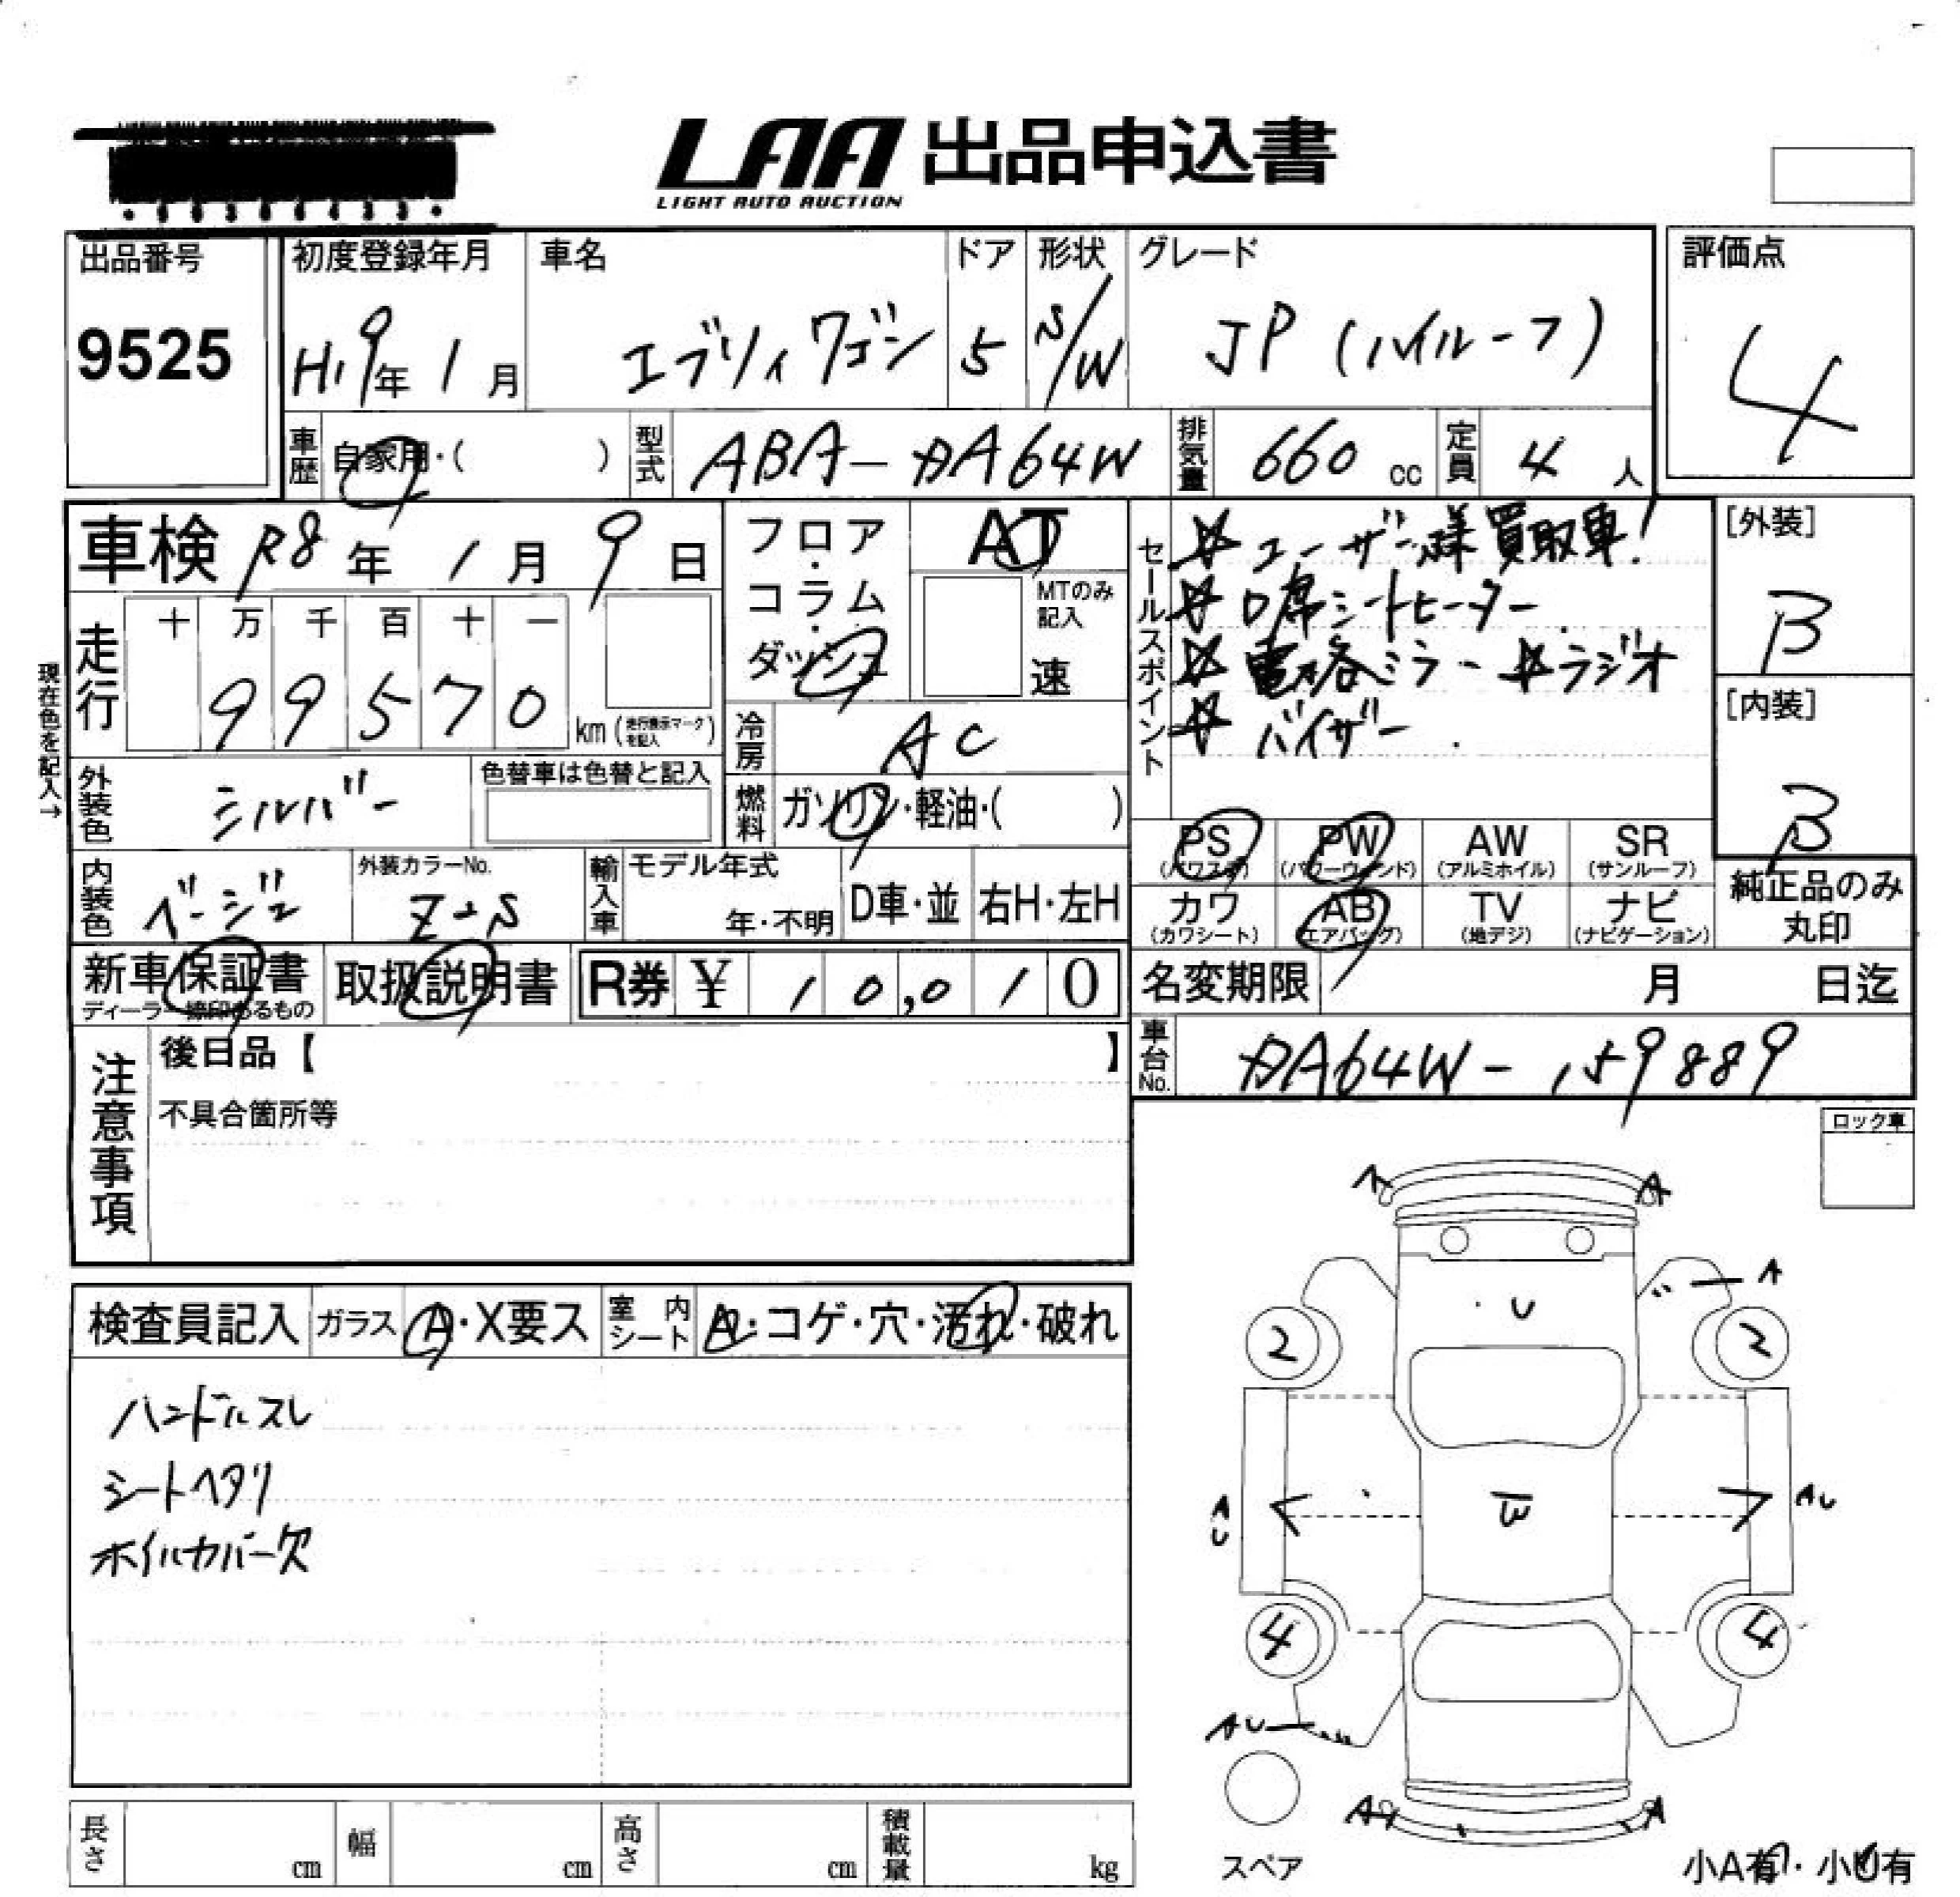 LAA 出品申込書
LIGHT AUTO AUCTION
出品番号
9525
初度登録年月
H19年 1月
車名
エブリィワゴン
ドア
5
形状
S/W
グレード
JP(ハイルーフ)
評価点
4
車歴 自家用・( )
型式 ABA-DA64W
排気量 660 cc
定員 4 人
車検 R8年 1月 9日
フロア・コラム・ダッシュ
AT
MTのみ記入
速
セールスポイント
☆ユーザー様買取車!
☆D席シートヒーター
☆電格ミラー ☆ラジオ
☆バイザー
[外装]
B
[内装]
B
現在色を記入→
走行
十 万 千 百 十 一
9 9 5 7 0
km(走行表示マークを記入)
冷房 AC
外装色 シルバー
色替車は色替と記入
燃料 ガソリン・軽油・( )
PS (パワステ)
PW (パワーウィンド)
AW (アルミホイル)
SR (サンルーフ)
内装色 ベージュ
外装カラーNo.
Z2S
輸入車
モデル年式
年・不明
D車・並
右H・左H
カワ (カワシート)
AB (エアバッグ)
TV (地デジ)
ナビ (ナビゲーション)
純正品のみ丸印
新車保証書
ディーラー捺印あるもの
取扱説明書
R券 ¥ 10,010
名変期限 月 日迄
車台No. DA64W-159889
注意事項
後日品【 】
不具合箇所等
ロック車
検査員記入
ガラス A・X要ス
室内シート A・コゲ・穴・汚れ・破れ
ハンドルスレ
シートヘタリ
ホイルカバー欠
A A
A
U
2 2
AU AU
W
4 4
AU
A A
スペア
小A有・小U有
長さ cm
幅 cm
高さ cm
積載量 kg